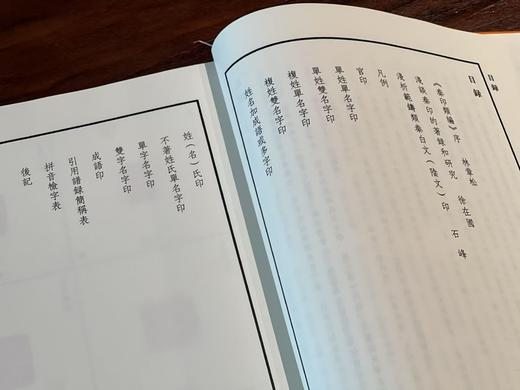 目録
目録
《秦印類編》序　林章松
淺談秦印的著録和研究　徐在國
淺析範鑄類秦白文（陰文）印　石峰
凡例
官印
單姓單名字印
單姓雙名字印
複姓單名字印
複姓雙名字印
姓名加成語或多字印
姓（名）氏印
不著姓氏單名字印
單字名字印
雙字名字印
成語印
引用譜録簡稱表
拼音檢字表
後記